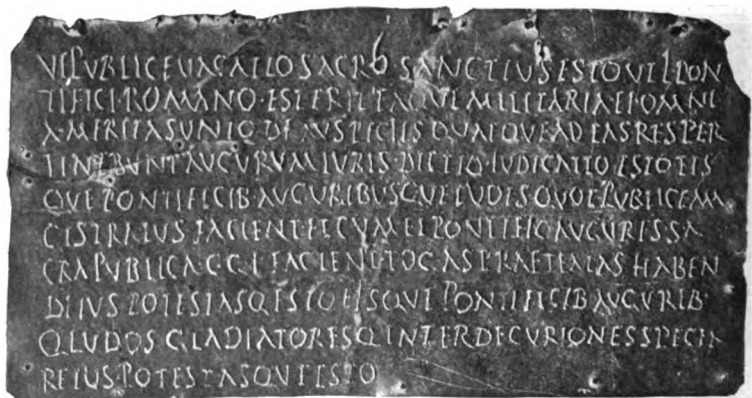 VSPVBLICEVACATIOSACRO SANCTIVSESTOVTI PON
TIFICI·ROMANO·ESTERITAQVEMILITARIAEI·OMNI
A·MERITASVNTO·DEAVSPICIISQVAEQVEADEASRESPER
TINEBVNTAVGVRVMIVRIS·DICTIO·IVDICATIO·ESTOEIS
QVE PONTIFICIB·AVGVRIBVSQVELVDISQVOTPVBLICEMA
GISTRATVS FACIENTETCVMEI PONTIFIC AVGVRESSA
CRAPVBLICACGIFACIENTTOGASPRAETEXTAS HABEN
DI IVS POTESTASQESTO EISQVE PONTIFICIB AVGVRIB·
QLVDOSGLADIATORESQINTERDECVRIONESSPECTA
REIVSPOTESTASQVEESTO